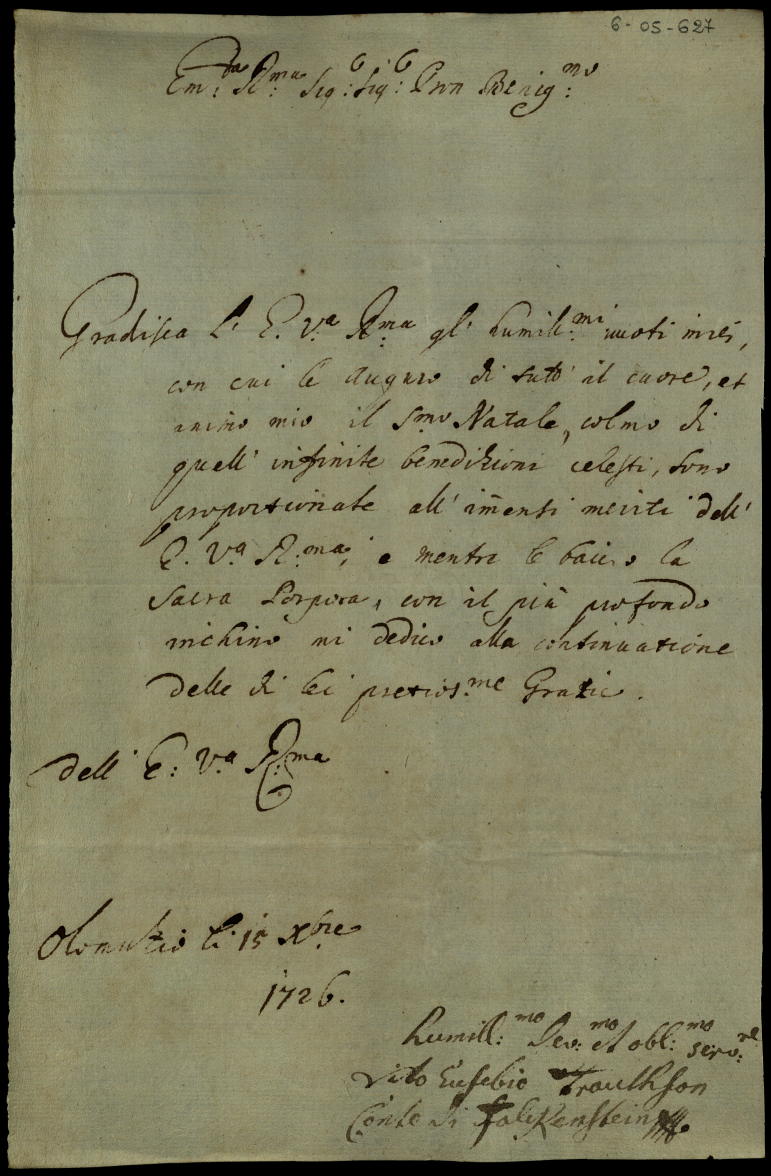 6-05-627
Em:za R:ma Sig:e Sig:e Pron Benig:mo
Gradisca l' E. V.a R:ma gl' humil:mi uuoti miei,
con cui le Auguro di tuto il cuore, et
animo mio il S:mo Natale, colmo di
quell' infinite benedizioni celesti, sono
proportionate all' imensi meriti dell'
E. V.a R:ma, e mentre le bacio la
Sacra Porpora, con il più profondo
inchino mi dedico alla continuatione
delle di lei pretios:me Grazie.
dell' E: V.a R:ma
Olomutio li 15 Xbre
1726.
humill:mo Dev:mo et obl:mo servo:re
Vito Eusebio Trauthson
Conte di Falckenstein